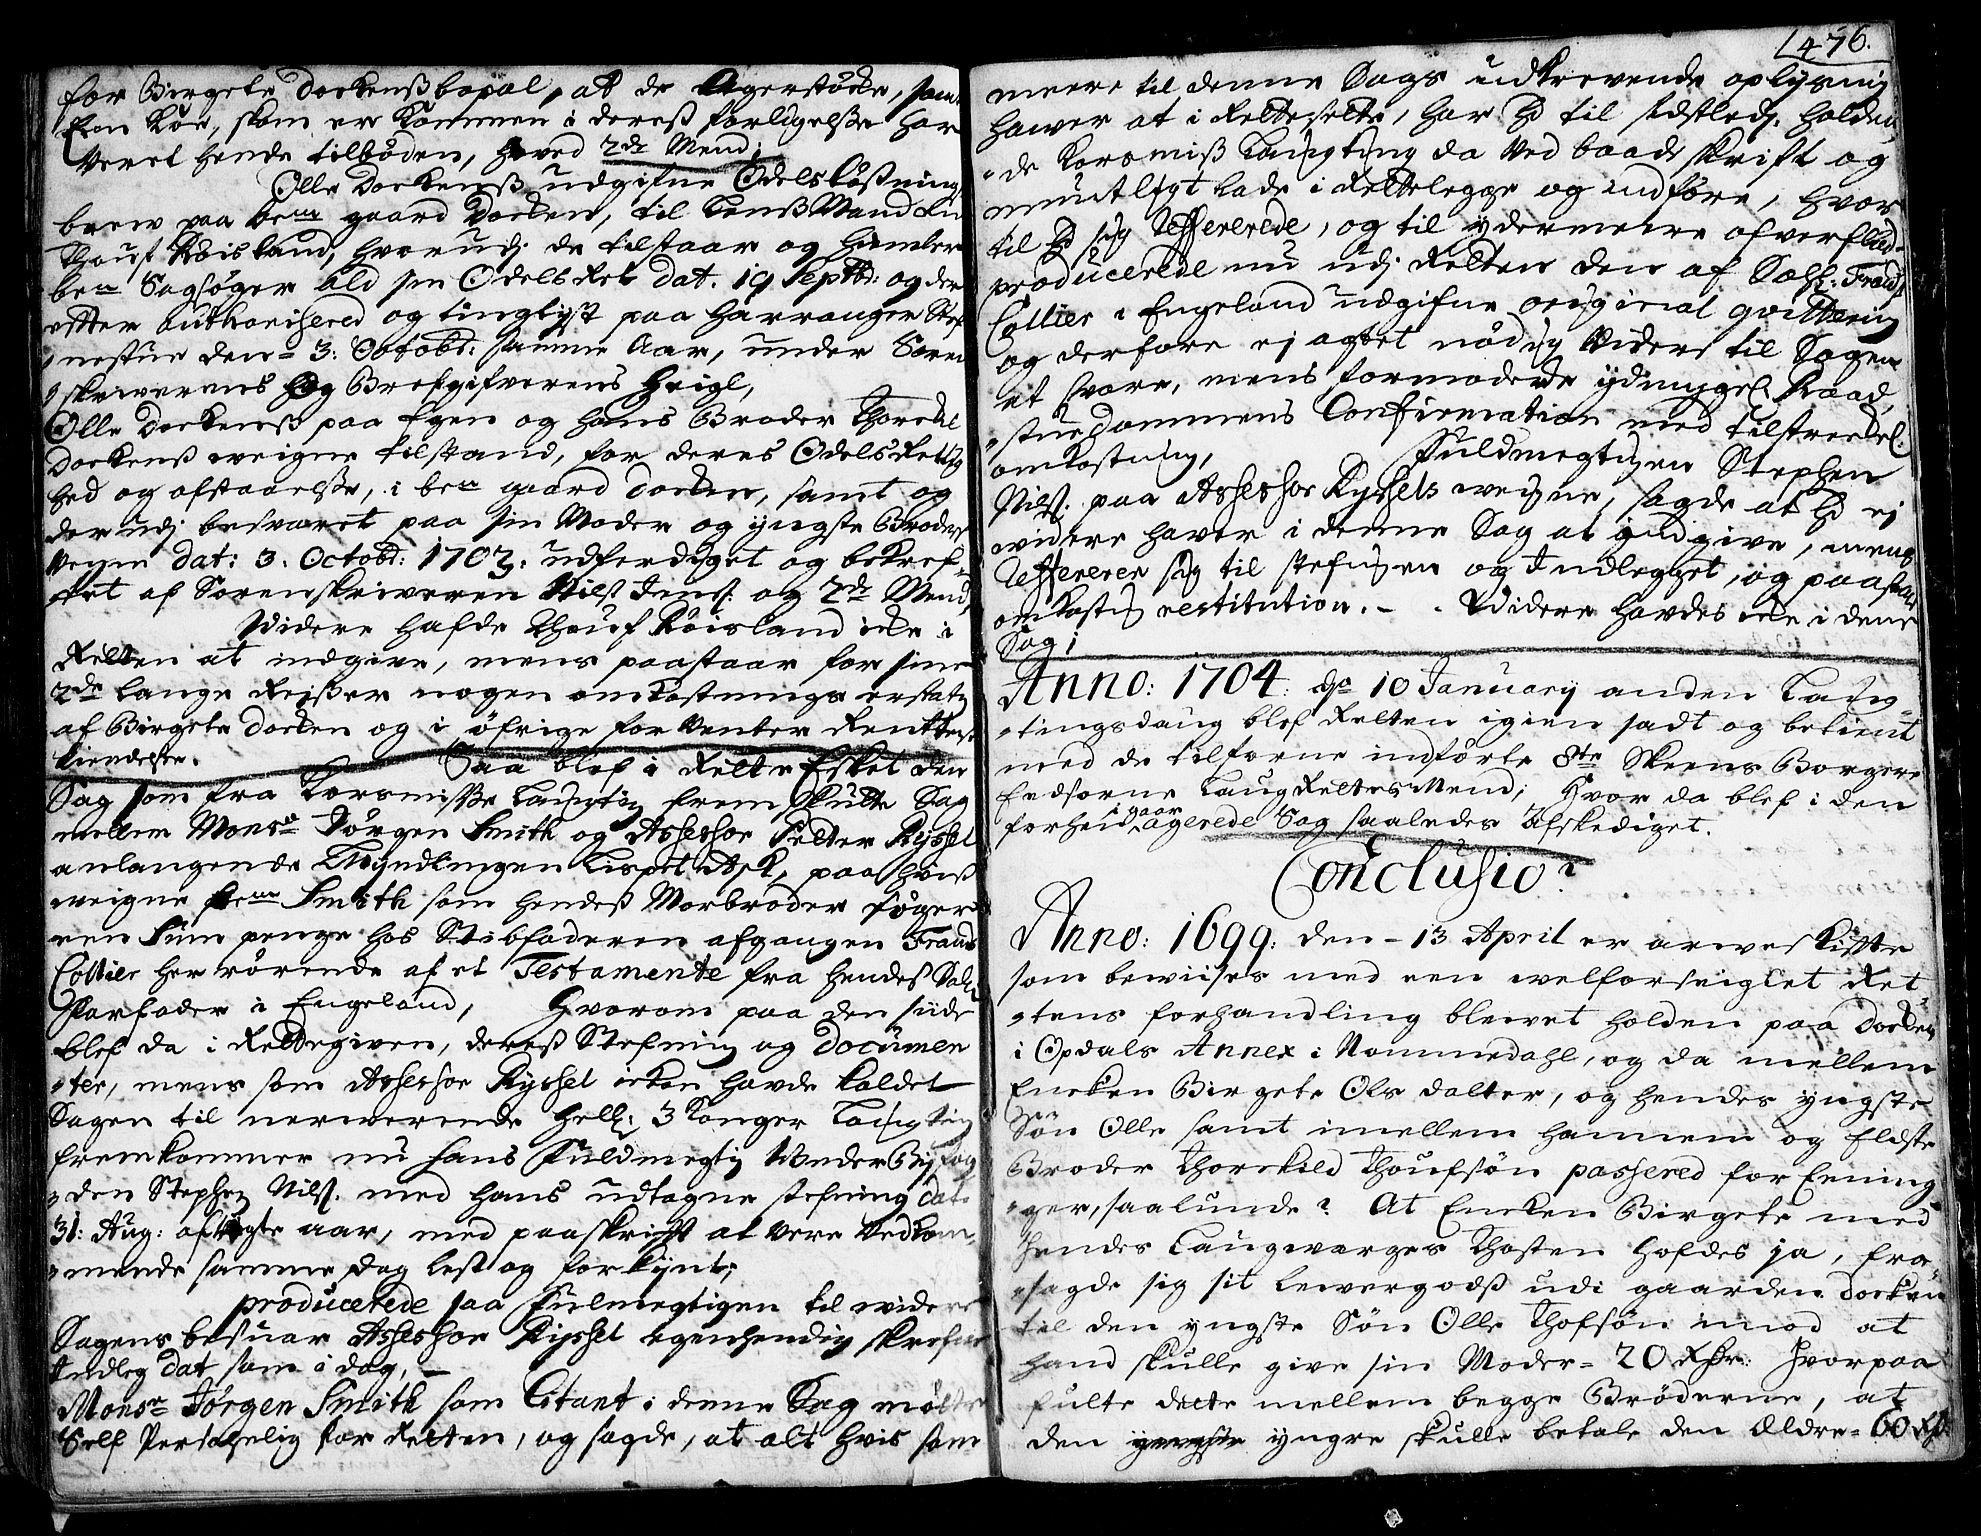 for Birgete Dockenß bopæl, at de Agerstöcke, samt
Een Koe, som er kommen i dereß forligelsse har
Veret hende tilböden, hved 2de Mend;
Olle Dockenß udgifne Odelslößning
breew paa bem. gaard Docken, til Lenß Manden
Thouf Röisland, hvorudj de tilstaar og hiembler
bem. Sagsöger ald sin Odelsret dat. 19 Septbr: og der
efter authoriseret og tinglyst paa Harranger Stef
nestue den 3: Octobr: samme Aar, under Soren
skriwerens og Brefgifverens Seigl,
Olle Dockenß paa Egen og hans Broder Thorchel
Dockenß weigne tilstand, for deres Odelsrettig
hed og afstaaelsse, i bem. gaard Docken, samt og
der udj besvaret paa sin Moder og yngste Broders
Vegne dat: 3. Octobr: 1703. udferdiget og bekref-
tet af Sorenskriweren Nilß Jens: og 2de Mend,
Widere hafde Thouf Röisland icke i
Retten at indgive, mens paastaar for sine
2de lange Reißer nogen omkostnings erstatng
af Birgete Docken og i öfrige forventer Rettens
kiendelse.
Saa blef i Rette Esket den
Sag som fra Korsmiße Laugting fremskulte Sag
mellem Monsr Jörgen Smith og Assessor Petter Kyssel
anlangende Myndlingen Lispet Ask, paa hviß
weigne bem. Smith som hendeß Morbroder söger
een Sum penge hos Stibfaderen afgangen Frands
Collier her rörende af et Testamente fra hendeß Sal.
Farfader i Engeland, Hvorom paa den siide
blef da i Rettegiven, dereß Stefning og Documen
ter, mens som Assessor Kyssel icke havde kaldet
Sagen til nerwerende Hell: 3 Konger Laugting
fremkommer nu hans Fuldmegtig Under Byfog
den Stephen Nilß: med hans udtagne stefning dat.
31: Aug: afvigte aar, med paaskrift at vere Vedkom-
mende samme dag lest og forkÿnt;
producerede saa Fulmegtigen til widere
Sagens besuar Assessor Kÿssel egenhendig skrefne
Indleg dat som i dag, —
Monsr Jörgen Smith som Citant i denne Sag mötte
Self Personelig for Retten, og sagde, at alt hvis som
476.
meere til denne Sags udkrevende oplysning
hawer at i Rettesette, har hd til sidstledj: holden
de Korsmiß Laugting da ved baade skrift og
mundtligt lade i Rettelegge og indföre, hvor
til hd sig Refererede, og til ydermeere ofverflud
producerede nu udj Retten den af Sal: Frands
Collier i Engeland udgifne original qvittering
og derfore ej agtet nödig videre til Sagen
et svare, mens formodede ydmygel: Raad
stuedommens Confirmation med tilstreckel:
omkostning, Fuldmegtigen Stephen
Nilß: paa Assessor Kyssels weigne, sagde at hd ej
widere haver i denne Sag at indgive, mens
Refererer sig til stefningen og Indlegget, og paastaar
omkostng restitution. — . Widere havdes icke i denne
Sag;
Anno: 1704: do 10 January anden Laug-
tingsdaug blef Retten igien sadt og betient
med de tilforne indförte 8te Skeens Borgere
Eedsorne LaugRettes Mend; Hvor da blef i den
forhen i gaar agerede Sag saaledes Afskediget.
Conclusio?
Anno: 1699: den 13 April er arweskiffte
som bewiises med een welforseiglet Ret
tens forhandling blewet holden paa Docken
i Opdals Annex i Nommedahl, og da mellem
Encken Birgete Ols dalter, og hendes yngste
Sön Olle samt imellem hannem og Eldste
Broder Thorckild Thoufsön passered foreening
ger, saalunde? At Encken Birgete med
hendes Laugwarges Thosten Hofdes ja, fra-
sagde sig sit lewergodß udi gaarden Docken
til den yngste Sön Olle Thofsön imod at
hand skulle give sin Moder 20 Rdr: Hvorpaa
fulte dette mellem begge Bröderne, at
den yngre skulle betale den Ældre 60 Rdr